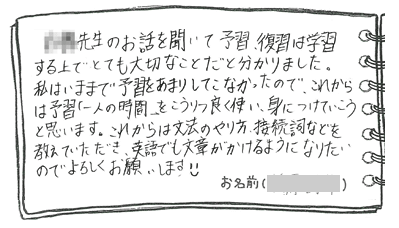 先生のお話を聞いて予習、復習は学習
する上でとても大切なことだと分かりました。
私はいままで予習をあまりしてこなかったので、これから
は予習「一人の時間」をこうりつ良く使い、身につけていこう
と思います。これからは文法のやり方、接続詞などを
教えていただき、英語でも文章がかけるようになりたい
のでよろしくお願いします!!
お名前( )